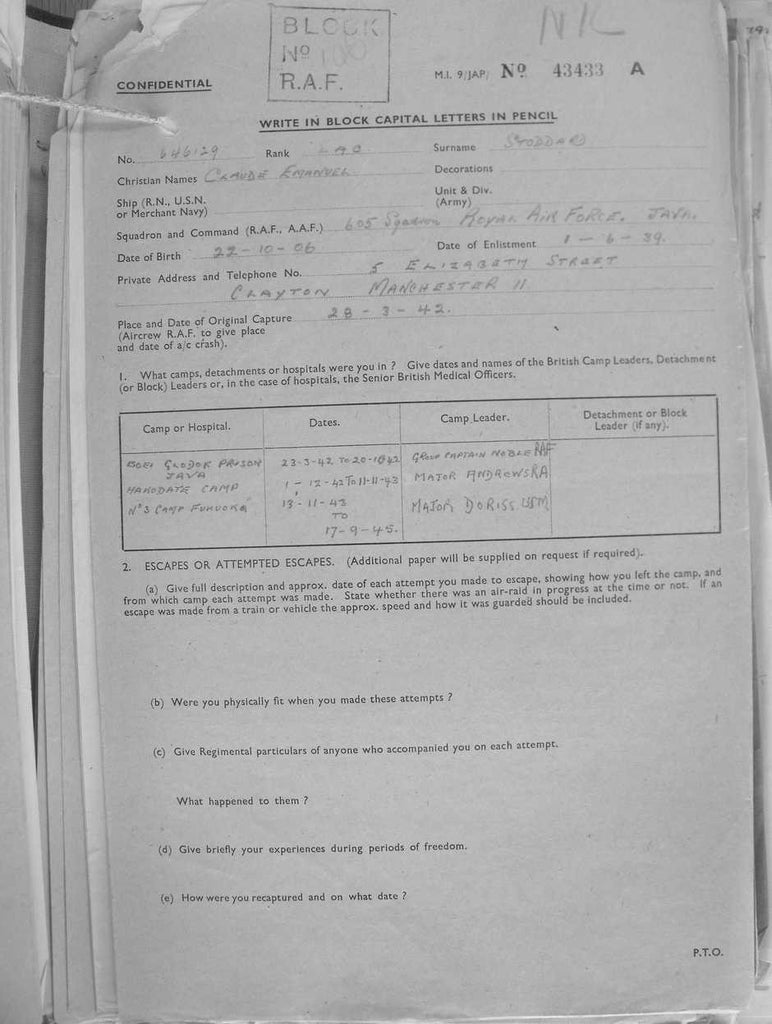 BLOCK
Nº
R.A.F.
NK
CONFIDENTIAL
M.I. 9/JAP/ Nº 43433 A
WRITE IN BLOCK CAPITAL LETTERS IN PENCIL
No. 646129 Rank LAC Surname STODDARD
Christian Names CLAUDE EMANUEL Decorations
Ship (R.N., U.S.N. or Merchant Navy) Unit & Div. (Army)
Squadron and Command (R.A.F., A.A.F.) 605 Sqadron ROYAL AIR FORCE. JAVA.
Date of Birth 22-10-06 Date of Enlistment 1-6-39.
Private Address and Telephone No. 5 ELIZABETH STREET
CLAYTON MANCHESTER 11.
Place and Date of Original Capture 28-3-42.
(Aircrew R.A.F. to give place
and date of a/c crash).
1. What camps, detachments or hospitals were you in ? Give dates and names of the British Camp Leaders, Detachment
(or Block) Leaders or, in the case of hospitals, the Senior British Medical Officers.
Camp or Hospital. Dates. Camp Leader. Detachment or Block Leader (if any).
BOEI GLODOK PRISON 23-3-42 TO 20-10-42 GROUP CAPTAIN NOBLE RAF
JAVA
HAKODATE CAMP 1-12-42 TO 11-11-43 MAJOR ANDREWS RA
Nº3 CAMP FUKUOKA 13-11-43 MAJOR DORISS USM
TO
17-9-45.
2. ESCAPES OR ATTEMPTED ESCAPES. (Additional paper will be supplied on request if required).
(a) Give full description and approx. date of each attempt you made to escape, showing how you left the camp, and
from which camp each attempt was made. State whether there was an air-raid in progress at the time or not. If an
escape was made from a train or vehicle the approx. speed and how it was guarded should be included.
(b) Were you physically fit when you made these attempts ?
(c) Give Regimental particulars of anyone who accompanied you on each attempt.
What happened to them ?
(d) Give briefly your experiences during periods of freedom.
(e) How were you recaptured and on what date ?
P.T.O.